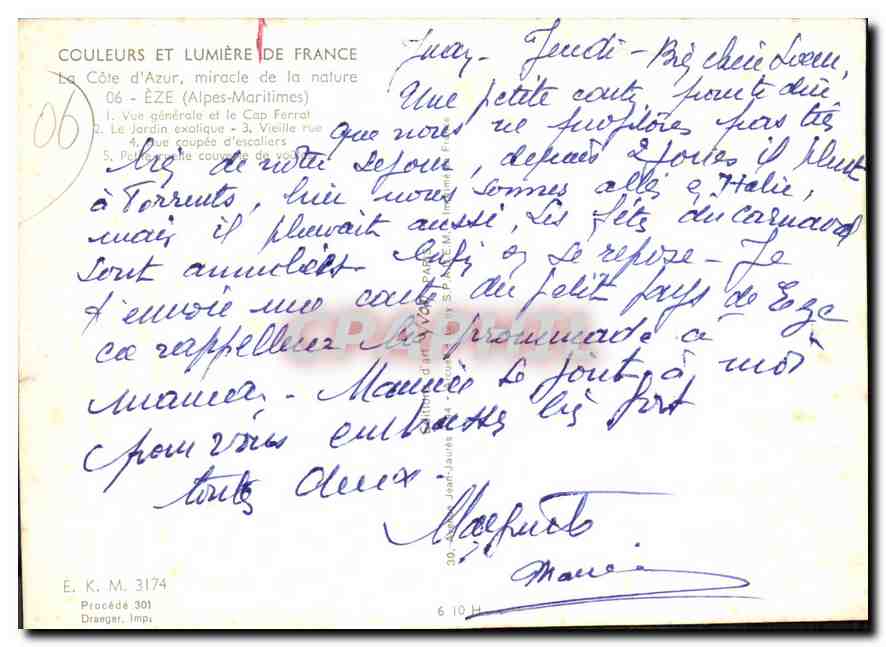 COULEURS ET LUMIÈRE DE FRANCE
La Côte d'Azur, miracle de la nature
06 - ÈZE (Alpes-Maritimes)
1. Vue générale et le Cap Ferrat
2. Le Jardin exotique - 3. Vieille rue
4. Rue coupée d'escaliers
5. Petite ruelle couverte de
06
Juan - Jeudi - chère
Une petite carte pour te dire
que nous ne profitons pas très
très de notre séjour, depuis 2 jours il pleut
à Torrents, hier nous sommes allés Italie,
mais il pleuvait aussi, les fêtes du carnaval
sont annulées. Enfin on se repose - Je
t'envoie une carte du petit pays de Eze
ca rappellera promenade à
maman - Maurice se joint à moi
pour vous embrasser très fort
toutes deux.
Maurice
30, Avenue Jean-Jaurès
PARIS
E. K. M. 3174
Procédé 301
Draeger, Imp.
6 10 H